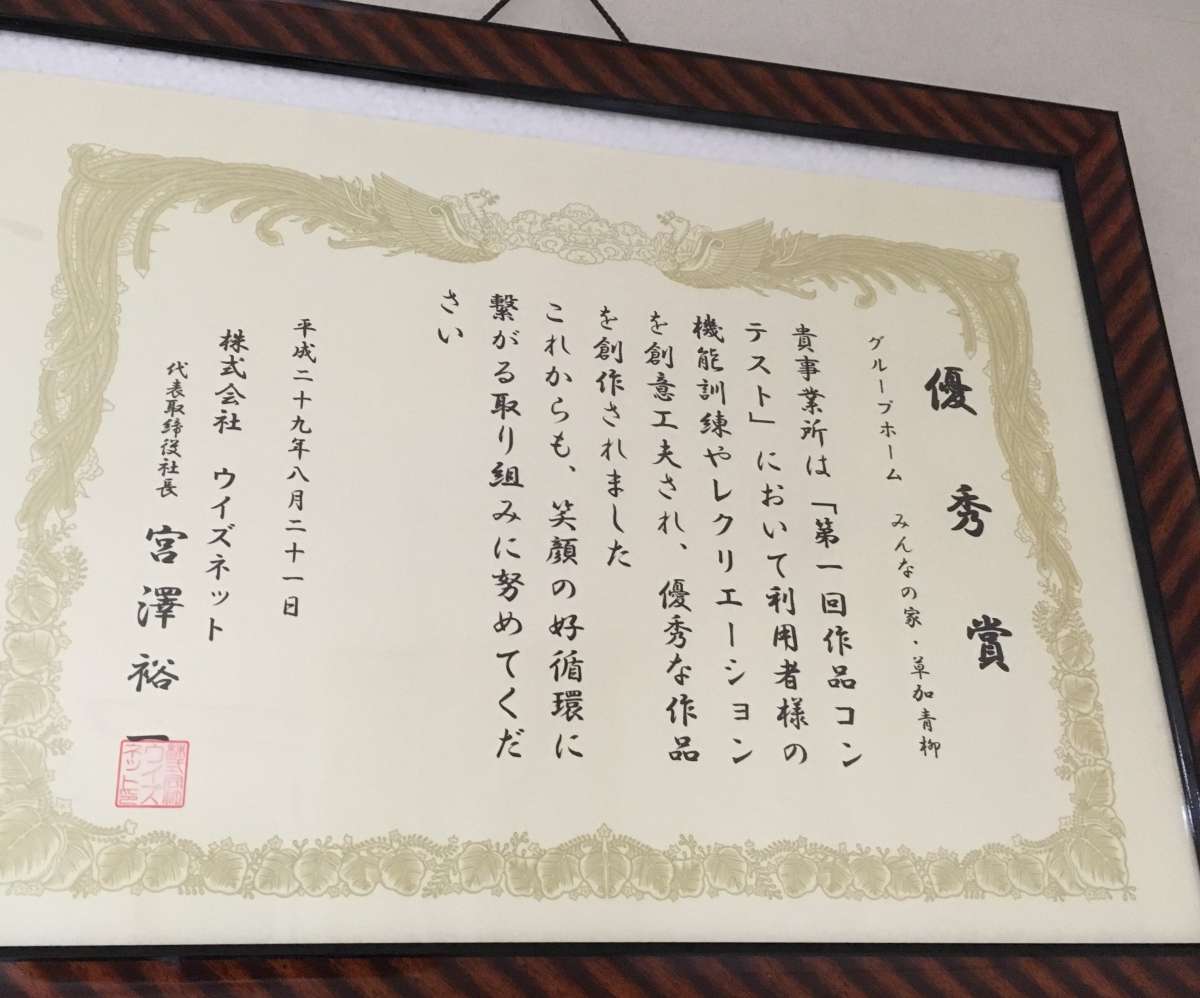 優秀賞
グループホーム　みんなの家・草加青柳
貴事業所は「第一回作品コン
テスト」において利用者様の
機能訓練やレクリエーション
を創意工夫され、優秀な作品
を創作されました
これからも、笑顔の好循環に
繋がる取り組みに努めてくだ
さい
平成二十九年八月二十一日
株式会社　ウイズネット
代表取締役社長　宮澤裕一
株式会社
ウイズ
ネット印